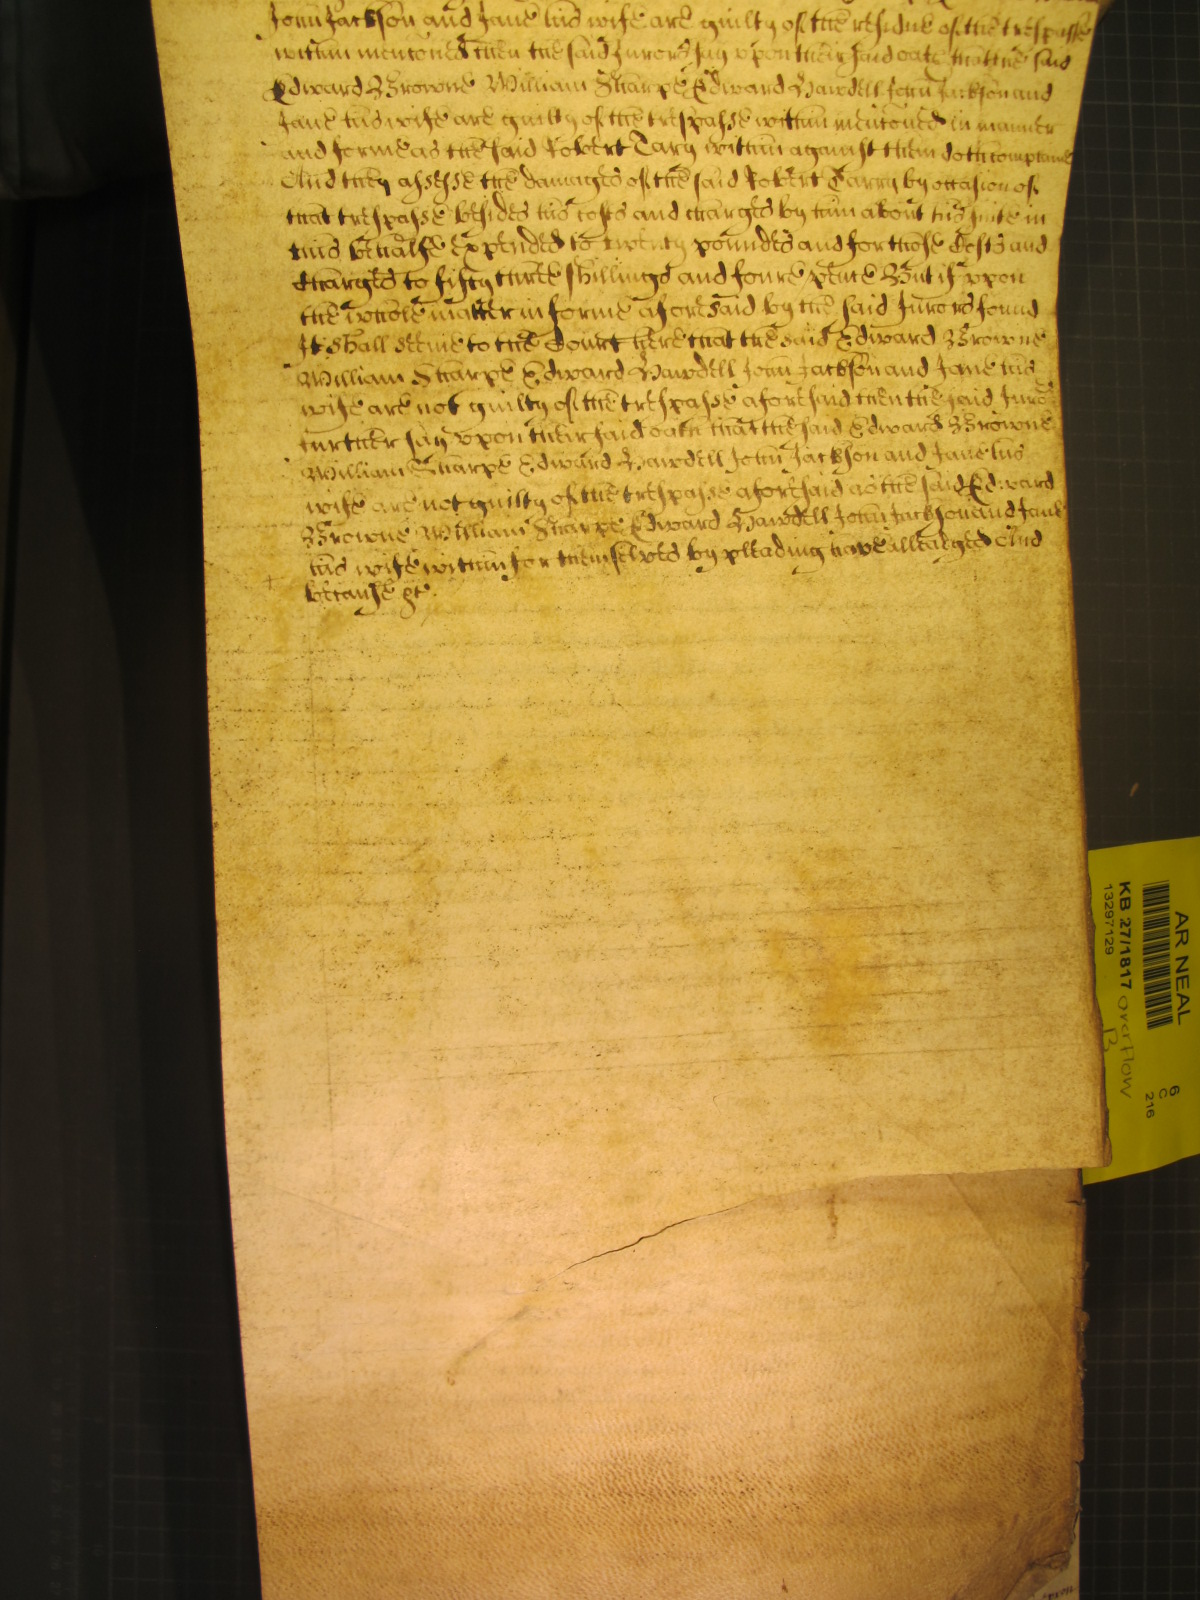 John Jackson and Jane his wife are guilty of the residue of the trespasse
within mentioned then the said Jurors say upon their said oath that the said
Edward Browne William Sharpe Edward Hawdell John Jackson and
Jane his wife are guilty of the trespasse within mentioned in manner
and forme as the said Robert Cary within against them doth complaine
And they assesse the damages of the said Robert Carry by occasion of
that trespasse besides his costs and charges by him about his suite in
this behalfe expended to twenty poundes and for those Costs and
Charges to fifty three shillings and foure pence But if upon
the whole matter in forme aforesaid by the said Jurors found
It shall seeme to the Court here that the said Edward Browne
William Sharpe Edward Hawdell John Jackson and Jane his
wife are not guilty of the trespasse aforesaid then the said Juro
further say vpon their said oath that the said Edward Browne
William Sharpe Edward Hawdell John Jackson and Jane his
wife are not guilty of the trespasse aforesaid as the said Edward
Browne William Sharpe Edward Hawdell John Jackson and Jane
his wife within for themselves by pleading have alleadged And
because &c.
AR NEAL
KB 27/1817 overflow
B
13297129
6
C
216